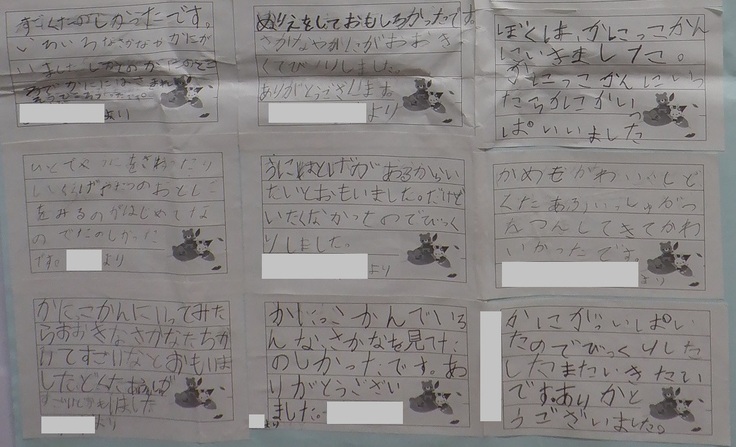 すごくたのしかったです。
いろいろなさかなやかにが
いました。
より
ぬりえをしておもしろかったです
さかなやかにがおおき
くてびっくりしました。
ありがとうございます
より
ぼくは、かにっこかん
にいきました。
かにっこかんにいっ
たらかにがいっ
ぱいいました
ひとでやうにをさわったり
いくらはなつのおとしご
をみるのがはじめてな
のでたのしかった
です。
より
うにはとげがあるからい
たいとおもいました。だけど
いたくなかったのでびっく
りしました。
より
かめもかわいいしど
くたあ
してきてかわ
いかったです。
より
かにっこかんにいってみた
らおおきなさかなたちが
いてすごいなとおもいま
した
ました
より
かにっこかんでいろ
んな、さかなを見てた
のしかったです。あ
りがとうござい
ました。
より
かにがいっぱい
たのでびっくりした
したまたいきたい
です。ありがと
うございました。